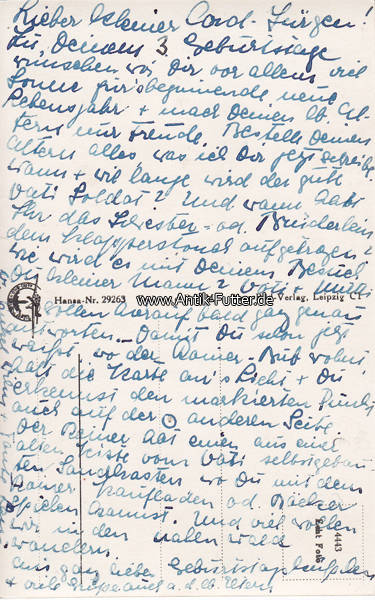 Lieber kleiner Card-Jürgen!
Zu Deinem 3. Geburtstage
wünschen wir Dir vor allem viel
Sonne für's beginnende neue
Lebensjahr + mach Deinen lb. El-
tern nur Freude. Bestelle Deinen
Eltern alles was ich Dir jetzt schreibe.
wann + wie lange wird der gute
Vati Soldat? Und wann habt
Ihr das Schwester- od. Brüderlein
dem Klapperstorch aufgetragen.
wie wird es mit Deinem Besuch
kleiner Mann? Vati + Mutti
Hansa-Nr. 29263
www.Antik-Futter.de
Verlag, Leipzig C1
sollen darauf bald ganz genau
antworten. Damit Du schon jetzt
weißt, wo der Rainer-Bub wohnt
halt die Karte an's Licht + Du
erkennst den markierten Punkt
auch auf der anderen Seite.
Der Rainer hat einen aus einer
alten Kiste vom Vati selbstgebau-
ten Sandkasten wo Du mit dem
Rainer Kaufladen od. Bäcker
spielen kannst. Und viel wollen
wir in den nahen Wald
wandern
ganz lieber
+ viele Grüße auch a. d. lb. Eltern
4443
Echt Foto